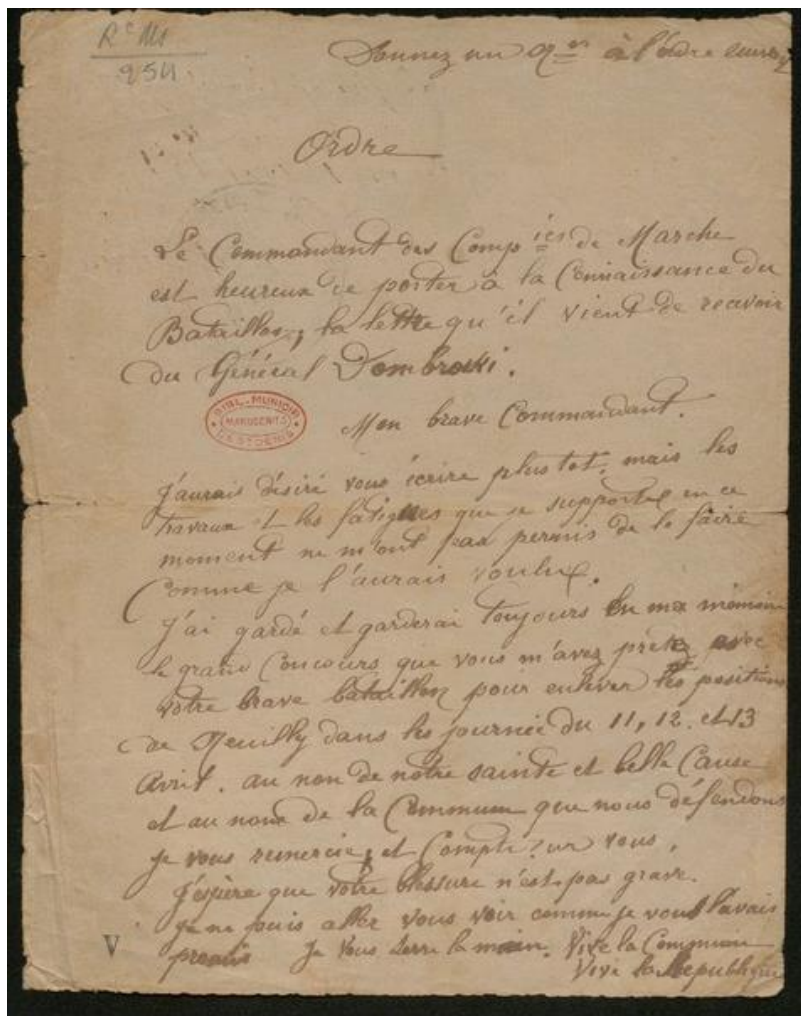 Rc Ms
254
Donnez un à l'ordre
Ordre
Le Commandant des Compies de Marche
est heureux de porter à la Connaissance du
Bataillon, la lettre qu'il vient de recevoir
du Général Dombroski.
BIBL. MUNICIP
MANUSCRITS
DE ST DENIS
Mon brave Commandant.
J'aurais désiré vous écrire plus tot, mais les
travaux et les fatigues que je supporte en ce
moment ne m'ont pas permis de le faire
Comme je l'aurais voulu.
J'ai gardé et garderai toujours en ma mémoire
le grand Concours que vous m'avez prêté avec
votre brave bataillon pour enlever les positions
de Neuilly dans les journée du 11, 12. et 13
Avril. au nom de notre sainte et belle Cause
et au nom de la Commune que nous défendons
je vous remercie, et Compte sur vous,
J'espère que votre blessure n'est pas grave.
Je ne puis aller vous voir comme je vous l'avais
promis Je vous serre la main. Vive la Commune
Vive la République
V